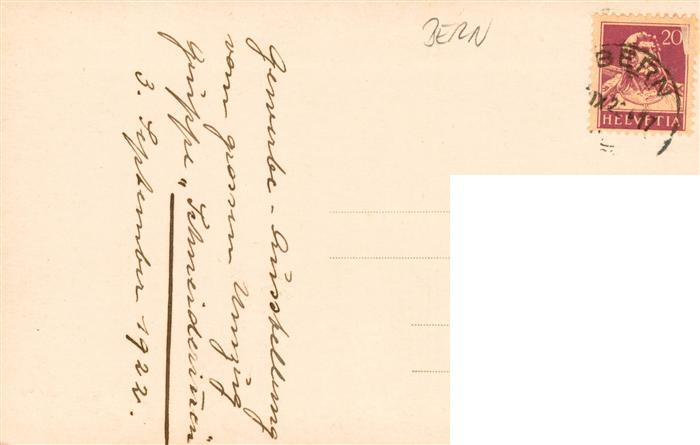 Gewerbe-Ausstellung
vom grossen Umzug
Gruppe „Schneiderinnen"
3. September 1922.
BERN
20
HELVETIA
BERN